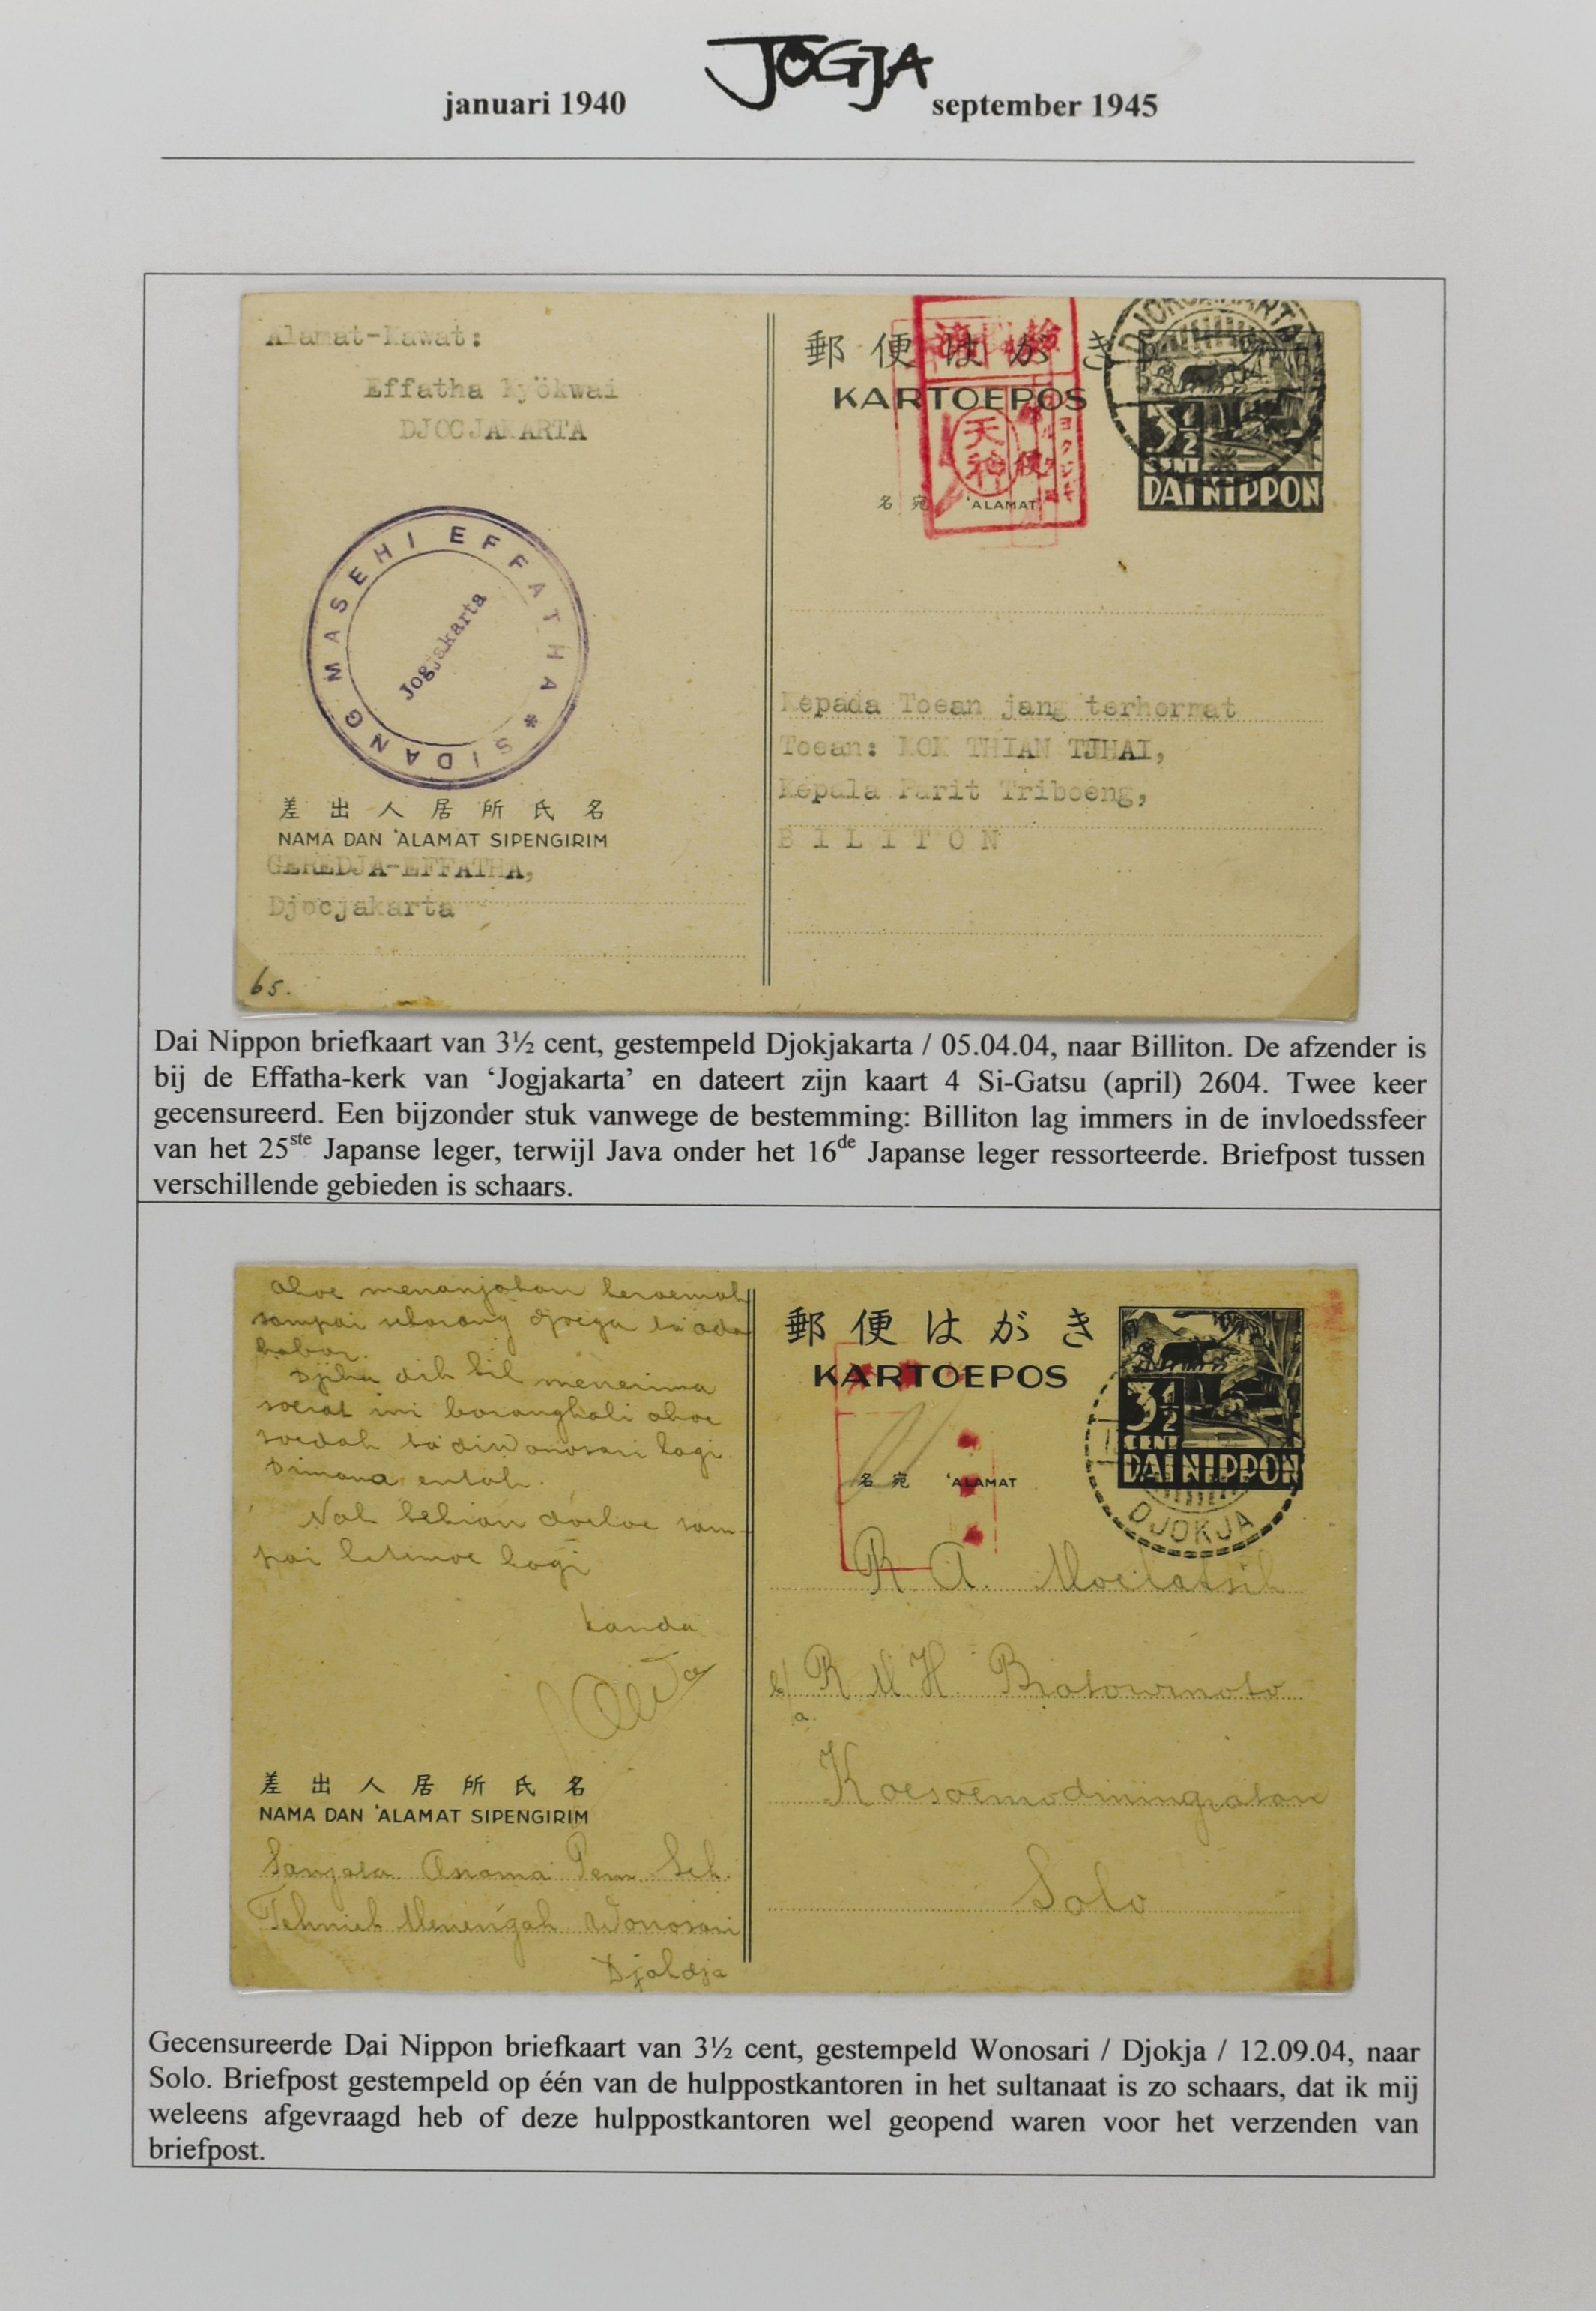 JOGJA
januari 1940 september 1945
Alamat-Kawat:
Effatha Kyökwai
DJOCJAKARTA
SIDANG MASEHI EFFATHA *
Jogjakarta
差出人居所氏名
NAMA DAN 'ALAMAT SIPENGIRIM
GEREDJA-EFFATHA,
Djocjakarta
65.
郵便はがき
KARTOEPOS
天神
名宛 'ALAMAT
3½
CENT
DAI NIPPON
Kepada Toean jang terhormat
Toean: KOK THIAN TJHAI,
Kepala Parit Triboeng,
BILITON
Dai Nippon briefkaart van 3½ cent, gestempeld Djokjakarta / 05.04.04, naar Billiton. De afzender is
bij de Effatha-kerk van ‘Jogjakarta’ en dateert zijn kaart 4 Si-Gatsu (april) 2604. Twee keer
gecensureerd. Een bijzonder stuk vanwege de bestemming: Billiton lag immers in de invloedssfeer
van het 25ste Japanse leger, terwijl Java onder het 16de Japanse leger ressorteerde. Briefpost tussen
verschillende gebieden is schaars.
sampai
kabar.
menerima
soerat ini barangkali akoe
soedah ta' di Wonosari lagi.
Dimana entah.
Nah sekian doeloe sam-
pai ketemoe lagi
kanda
差出人居所氏名
NAMA DAN 'ALAMAT SIPENGIRIM
Asrama Pem. Sek.
Tehnick Menengah Wonosari
Djokdja
郵便はがき
KARTOEPOS
名宛 'ALAMAT
3½
CENT
DAI NIPPON
DJOKJA
R. A.
R. M. H.
Koesoemodiningratan
Solo
Gecensureerde Dai Nippon briefkaart van 3½ cent, gestempeld Wonosari / Djokja / 12.09.04, naar
Solo. Briefpost gestempeld op één van de hulppostkantoren in het sultanaat is zo schaars, dat ik mij
weleens afgevraagd heb of deze hulppostkantoren wel geopend waren voor het verzenden van
briefpost.